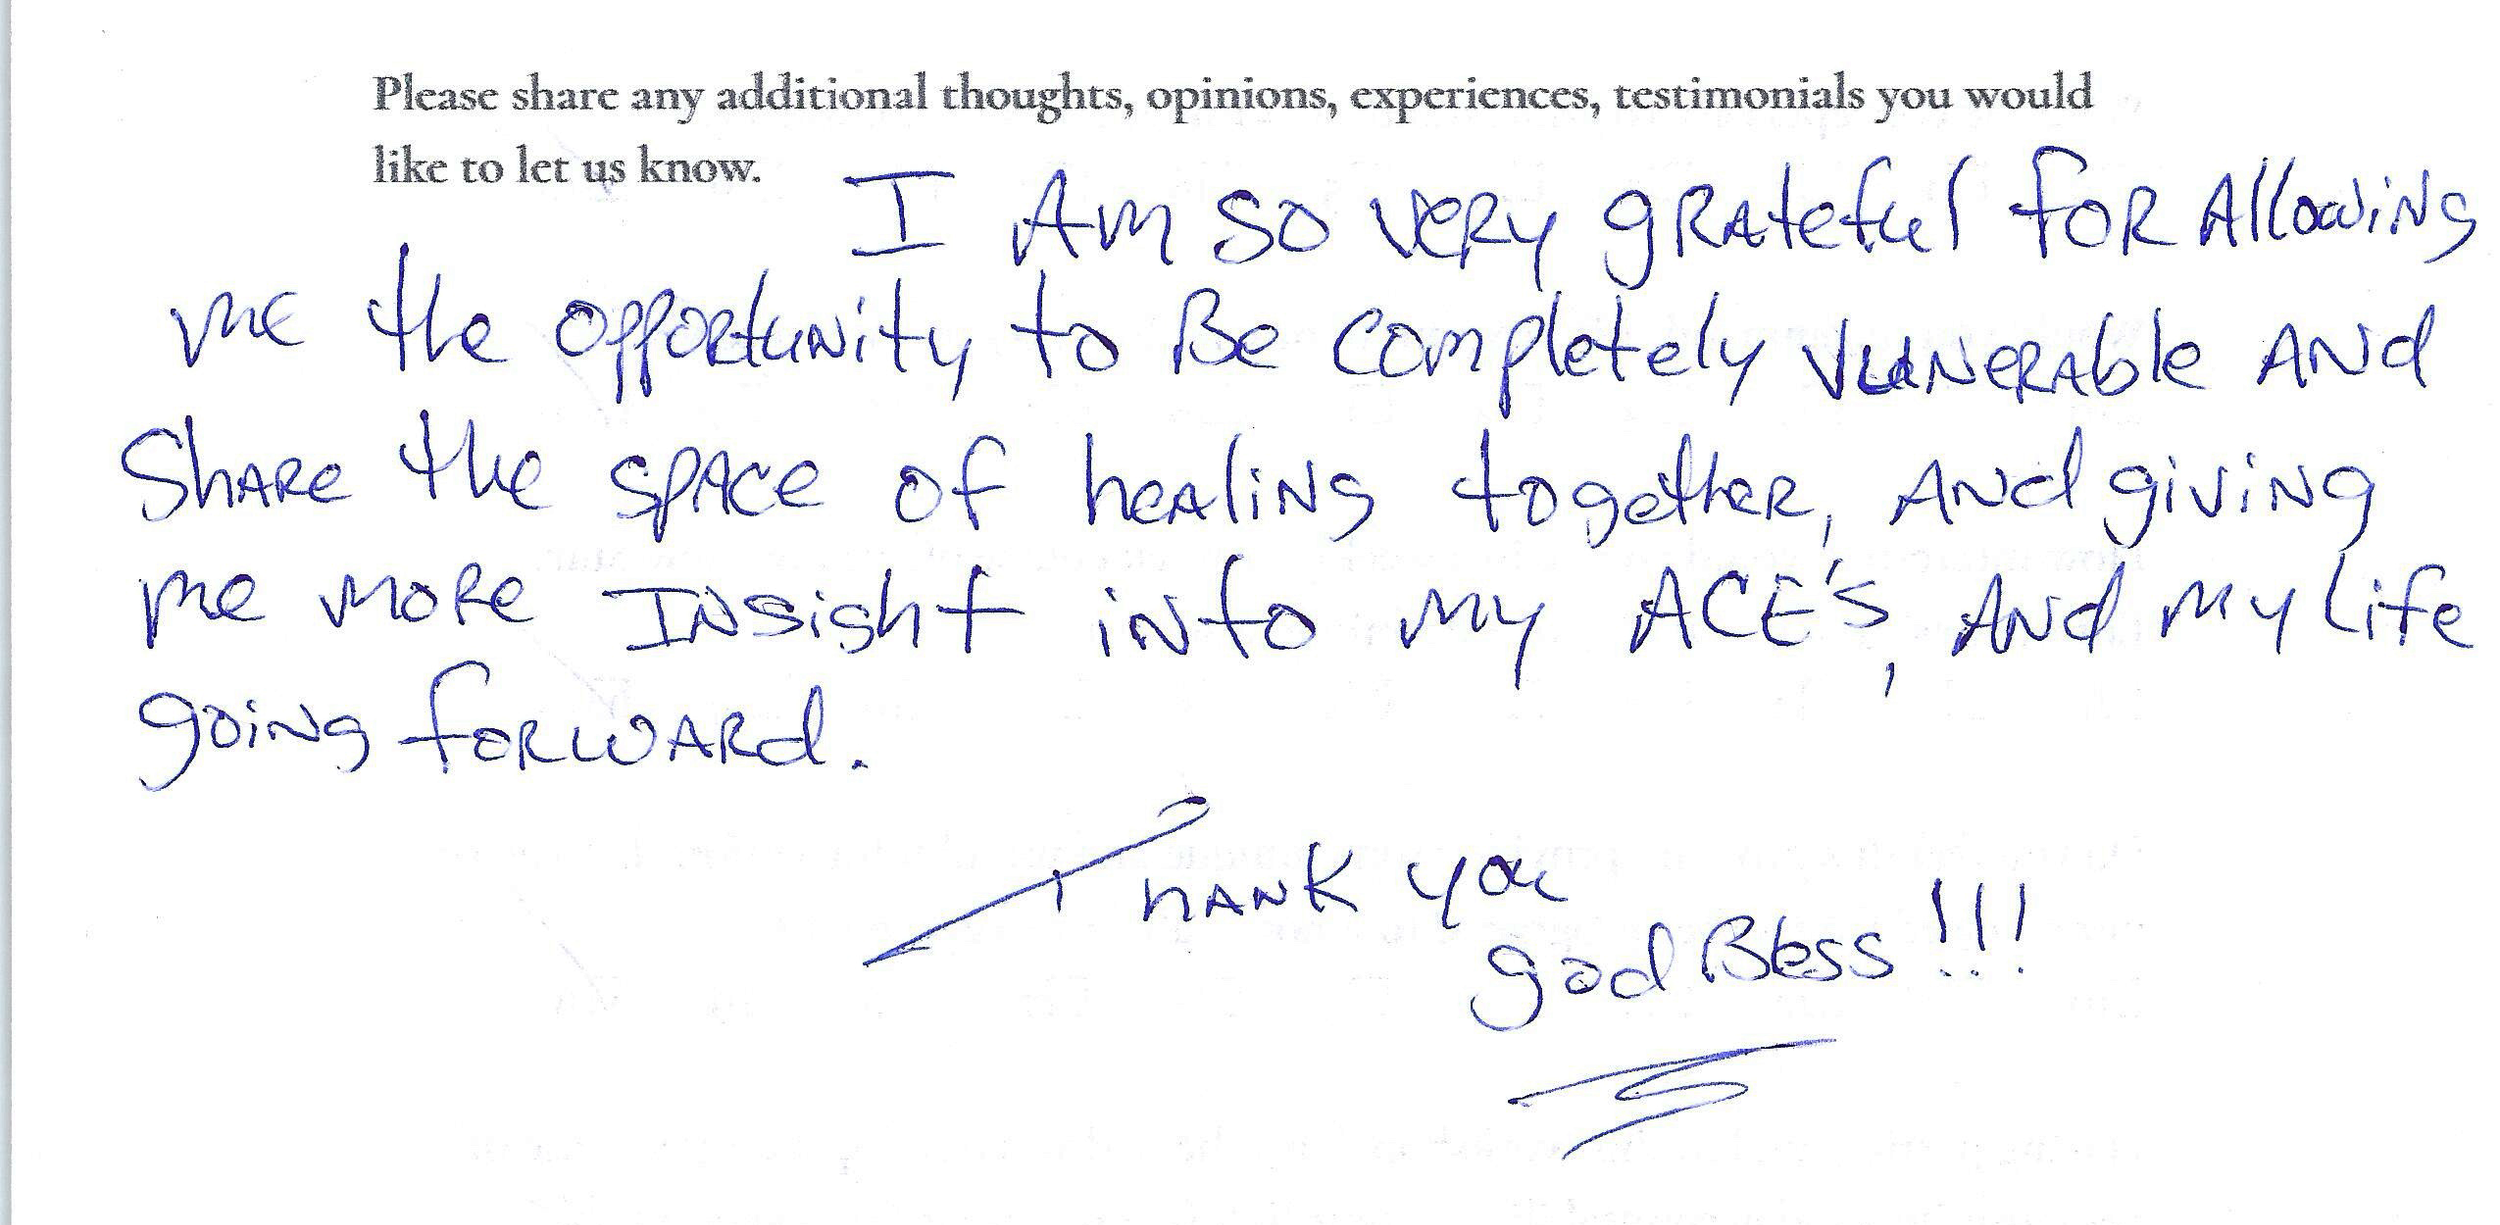 Please share any additional thoughts, opinions, experiences, testimonials you would
like to let us know.
I AM so very gRAteful foR Allowing
me the oppoRtuNity to Be completely vulNeRAble ANd
ShARe the spAce of heAliNg togetheR, ANd giviNg
me moRe INsight iNto my ACE's, ANd my life
goiNg foRwARd.
ThANK you
god Bless!!!